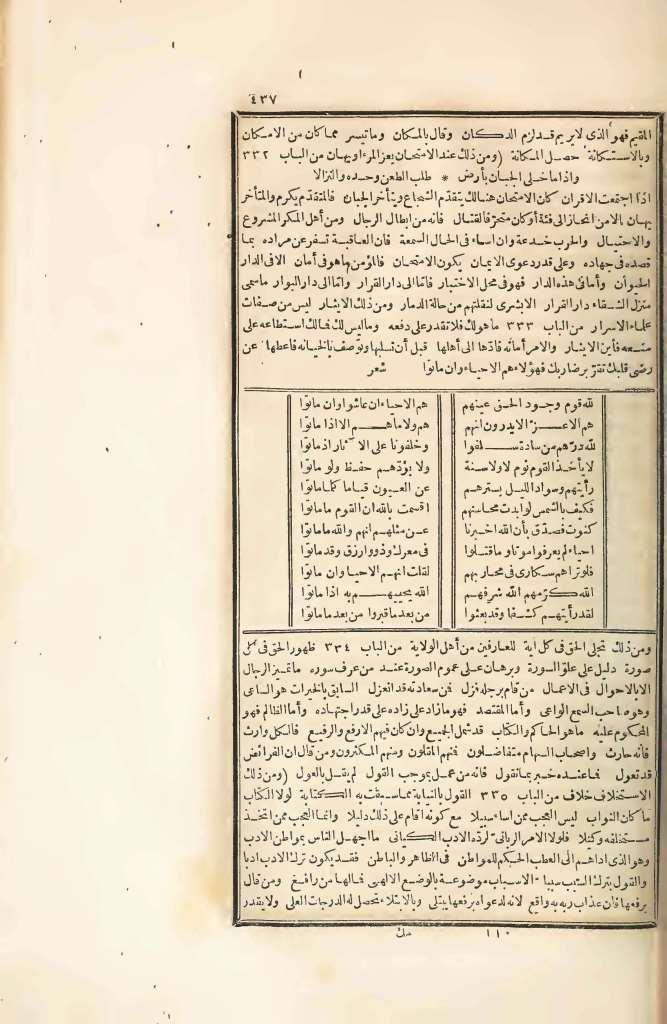 ٤٣٧
المقيم فهو الذي لا يريم قد لزم الدكان وقال بالمكان وما تيسر مما كان من الامكان
وبالاستكانة حصل المكانة (ومن ذلك عند الامتحان يعز المرء او يهان من الباب ٣٣٢
واذا ما خلى الجبان بأرض * طلب الطعن وحده والنزالا
اذا اجتمعت الاقران كان الامتحان هنالك يتقدّم الشجاع ويتأخر الجبان فالمتقدّم يكرم والمتأخر
يهان الا من انحاز الى فئة أو كان متحرّفا لقتال فانه من ابطال الرجال ومن أهل المكر المشروع
والاحتيال والحرب خدعة وان اساء في الحال السمعة فان العاقبة تسفر عن مراده بما
قصده في جهاده وعلى قدر دعوى الايمان يكون الامتحان فالمؤمن ما هو في أمان الا في الدار
الحيوان وأما في هذه الدار فهو في محل الاختبار فامّا الى دار القرار وامّا الى دار البوار ما سمى
منزل الشقاء دار القرار الا بشرى لنقلتهم من حالة الدمار ومن ذلك الايثار ليس من صفات
علماء الاسرار من الباب ٣٣٣ ما هو لك فلا تقدر على دفعه وما ليس لك فمالك استطاعه على
منعه فأين الايثار والامر أمانه فادّها الى أهلها قبل أن تسلبها وتوصف بالخيانه فاعطها عن
رضى قلبك تفز برضا ربك فهؤلاء هم الاحياء وان ماتوا شعر
لله قوم وجود الحق عينهم هم الاحياء ان عاشوا وان ماتوا
هم الاعز الا يدرون انهم هم ولا ما هم الا اذا ماتوا
لله درّهم من سادة سلفوا وخلفونا على الآثار اذ ماتوا
لا يأخذ القوم نوم لا ولا سنة ولا يؤدهم حفظ ولو ماتوا
رأيتهم وسواد الليل يسترهم عن العيون قياما كلما ماتوا
فكيف بالشمس لو ابدت محاسنهم اقسمت بالله ان القوم ما ماتوا
كنوت فصدّق بأن الله اخبرنا عن مثلهم انهم والله ما ماتوا
احياء لم يعرفوا موتا وما قتلوا في معرك وذووا رزق وقد ماتوا
فلو تراهم سكارى في محاربهم لقلت انهم الاحيا وان ماتوا
الله كرمهم الله شرفهم الله يحييهم به اذا ماتوا
لقد رأيتهم كشفا وقد بعثوا من بعد ما قبروا من بعد ما ماتوا
ومن ذلك تجلى الحق في كل آية للعارفين من أهل الولاية من الباب ٣٣٤ ظهور الحق في كل
صورة دليل على علوّ السورة وبرهان على عموم الصورة عند من عرف سوره ما تميز الرجال
الا بالاحوال في الاعمال من قام برجله فزل فمن سعادته قد انعزل السابق بالخيرات هو الساعى
وهو صاحب السمع الواعى وأما المقتصد فهو ما زاد على زاده على قدر اجتهاده وأما الظالم فهو
المحكوم عليه ما هو الحاكم والكتاب قد شمل الجميع وان كان فيهم الارفع والرفيع فالكل وارث
فأنه حارث واصحاب السهام متفاضلون فمنهم المقلون ومنهم المكثرون ومن قال ان الفرائض
قد تعول فما عنده خبر بما تقول فانه من عمل بموجب القول لم يقل بالعول (ومن ذلك
الاستخلاف خلاف من الباب ٣٣٥ القول بالنيابة مما سبقت به الكتابة لولا الكتاب
ما كان النواب ليس العجب ممن اساء سبيلا مع كونه أقام على ذلك دليلا وانما العجب ممن اتخذ
مستخلفه وكيلا فلولا الامر الربانى لردّه الادب الكيانى ما اجهل الناس بمواطن الادب
وهو الذى اداهم الى العطب الحكيم للمواطن في الظاهر والباطن فقد يكون ترك الادب ادبا
والقول بترك السبب سببا الاسباب موضوعة بالوضع الالهى فمالها من رافع ومن قال
برفعها فان عذاب ربه به واقع لانه لدعواه برفعها يبتلى وبالابتلاء تحصل له الدرجات العلى ولا يقدر
١١٠ مك